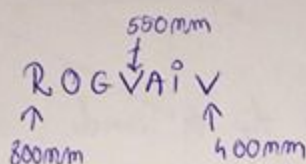 550mm
R O G V A i V
800mm
400mm